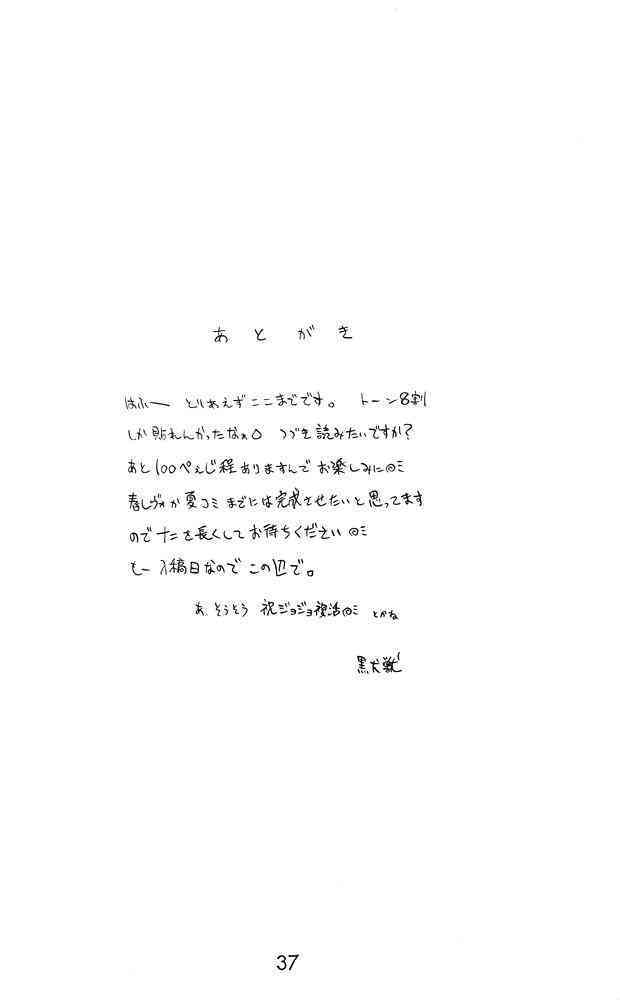 あとがき
はふー とりあえずここまでです。 トーン8割
しか貼れんかったなぁ○ つづき読みたいですか?
あと100ぺぇじ程ありますんでお楽しみに◎ミ
春レヴォか夏コミまでには完成させたいと思ってます
のでナニを長くしてお待ちください◎ミ
もー入稿日なのでこの辺で。
あ、そうそう 祝ジョジョ復活◎ミ とかね
黒犬獣
37